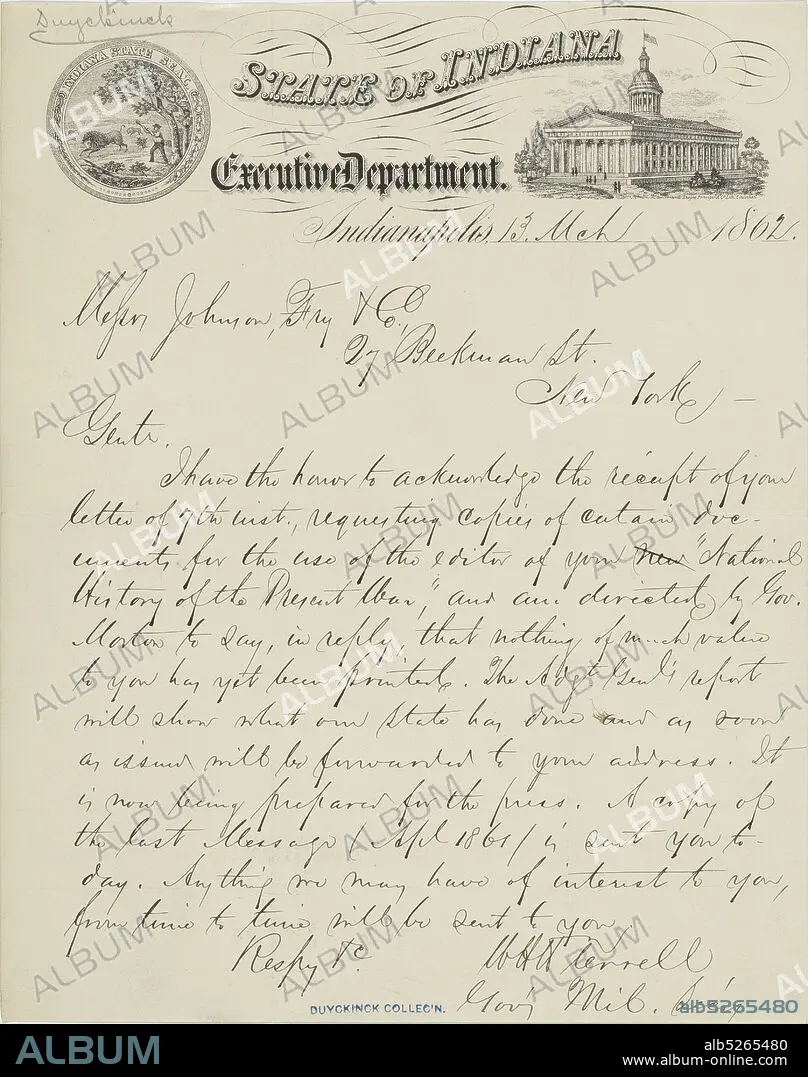 Duyckinck
INDIANA STATE SEAL
STATE OF INDIANA
Executive Department.
Indianapolis, 13. Mch 1862.
Messrs Johnson, Fry & C.
27 Beekman St.
New York —
Gents.
I have the honor to acknowledge the receipt of your
letter of 7th inst., requesting copies of certain doc-
uments for the use of the editor of your new "National
History of the Present War," and am directed by Gov.
Morton to say, in reply, that nothing of much value
to you has yet been printed. The Adjt Genl's report
will show what our State has done and as soon
as issued will be forwarded to your address. It
is now being prepared for the press. A copy of
the last Message / Apl 1861 / is sent you to-
day. Anything we may have of interest to you,
from time to time will be sent to you.
Respy &c.
WHH Terrell
Govs Mil. Secy
DUYCKINCK COLLEC'N.
alb5265480
ALBUM
alb5265480
www.album-online.com